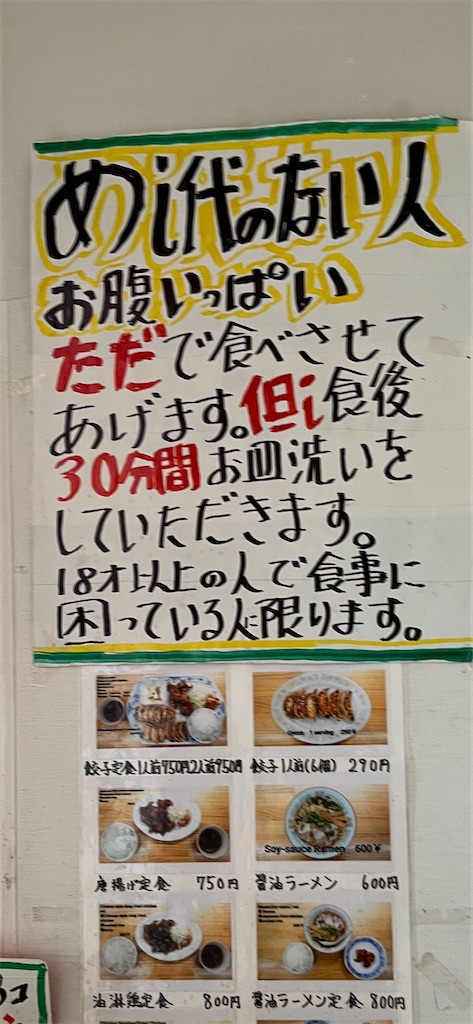 めし代のない人
お腹いっぱい
ただで食べさせて
あげます。但し食後
30分間お皿洗いを
していただきます。
18才以上の人で食事に
困っている人に限ります。
餃子定食1人前750円2人前950円
餃子1人前(6個) 290円
唐揚げ定食 750円
Soy-sauce Ramen 600¥
醤油ラーメン 600円
油淋鶏定食 800円
醤油ラーメン定食 800円